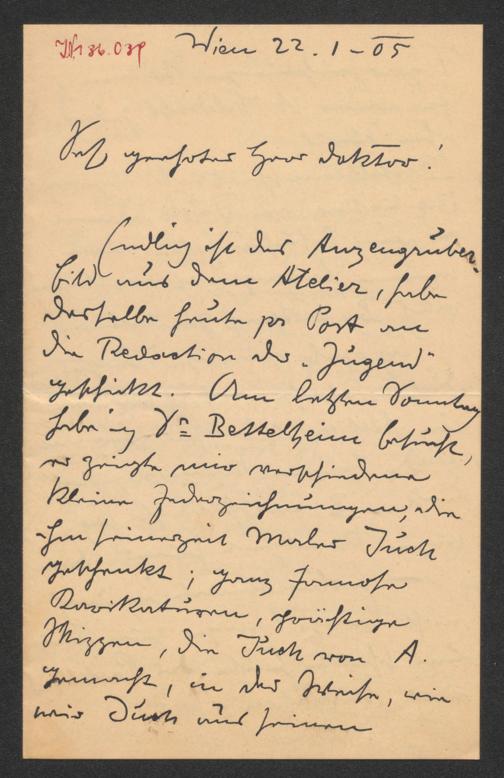 Wien 22. 1 – 05
Sehr geehrter Herr Doktor!
Endlich ist das Anzengruber-
bild aus dem Atelier, habe
dasselbe heute pr Post an
die Redaction der „Jugend“
geschickt. Am letzten Sonntag
habe ich Dr. Bettelheim besucht,
er zeigte mir verschiedene
kleine Federzeichnungen, die
ihm seinerzeit Maler Juch
geschenkt; ganz famose
Karikaturen, prächtige
Skizzen, die Juch von A.
gemacht, in der Weise, wie
wir Juch aus seinen